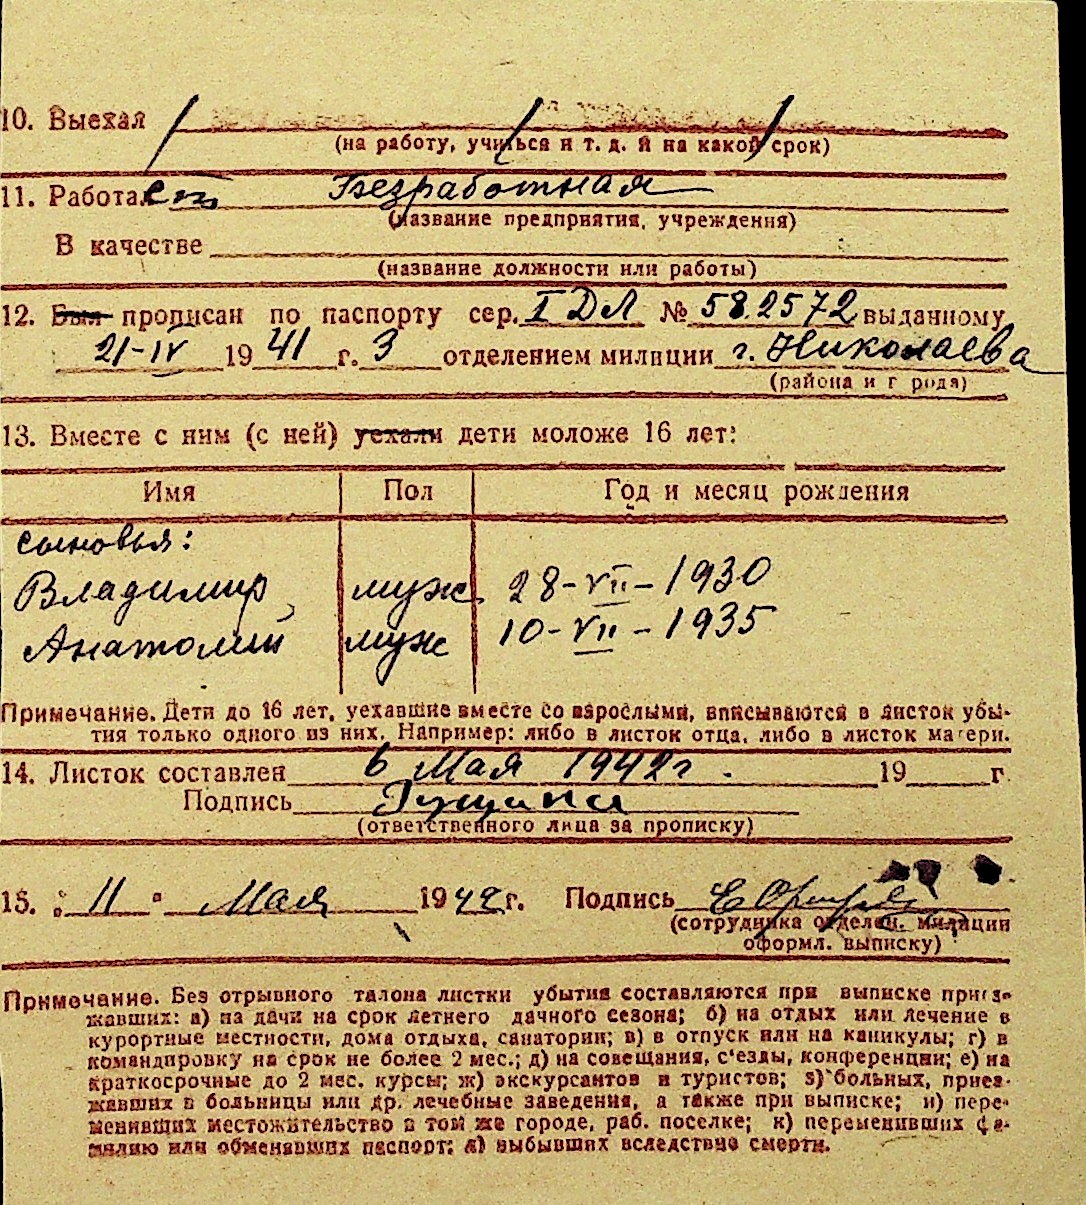 10. Выехал
(на работу, учиться и т. д. и на какой срок)
11. Работает Безработная
(название предприятия, учреждения)
В качестве
(название должности или работы)
12. Был прописан по паспорту сер. I ДЛ № 582572 выданному
21-IV 1941 г. 3 отделением милиции г. Николаева
(района и г рода)
13. Вместе с ним (с ней) уехали дети моложе 16 лет:
Имя Пол Год и месяц рождения
сыновья:
Владимир муж 28-VII-1930
Анатолий муж 10-VII-1935
Примечание. Дети до 16 лет, уехавшие вместе со взрослыми, вписываются в листок убы-
тия только одного из них. Например: либо в листок отца, либо в листок матери.
14. Листок составлен 6 Мая 1942 г. 19 г.
Подпись
(ответственного лица за прописку)
15. " 11 " Мая 1942 г. Подпись
(сотрудника отделен. милиции
оформл. выписку)
Примечание. Без отрывного талона листки убытия составляются при выписке приез-
жавших: а) на дачи на срок летнего дачного сезона; б) на отдых или лечение в
курортные местности, дома отдыха, санатории; в) в отпуск или на каникулы; г) в
командировку на срок не более 2 мес.; д) на совещания, с'езды, конференции; е) на
краткосрочные до 2 мес. курсы; ж) экскурсантов и туристов; з) больных, приез-
жавших в больницы или др. лечебные заведения, а также при выписке; и) пере-
менивших местожительство в том же городе, раб. поселке; к) переменивших фа-
милию или обменявших паспорт; л) выбывших вследствие смерти.